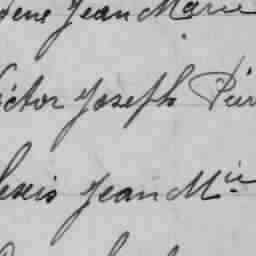 Jean Marie
Victor Joseph Pier
lexis Jean Mie